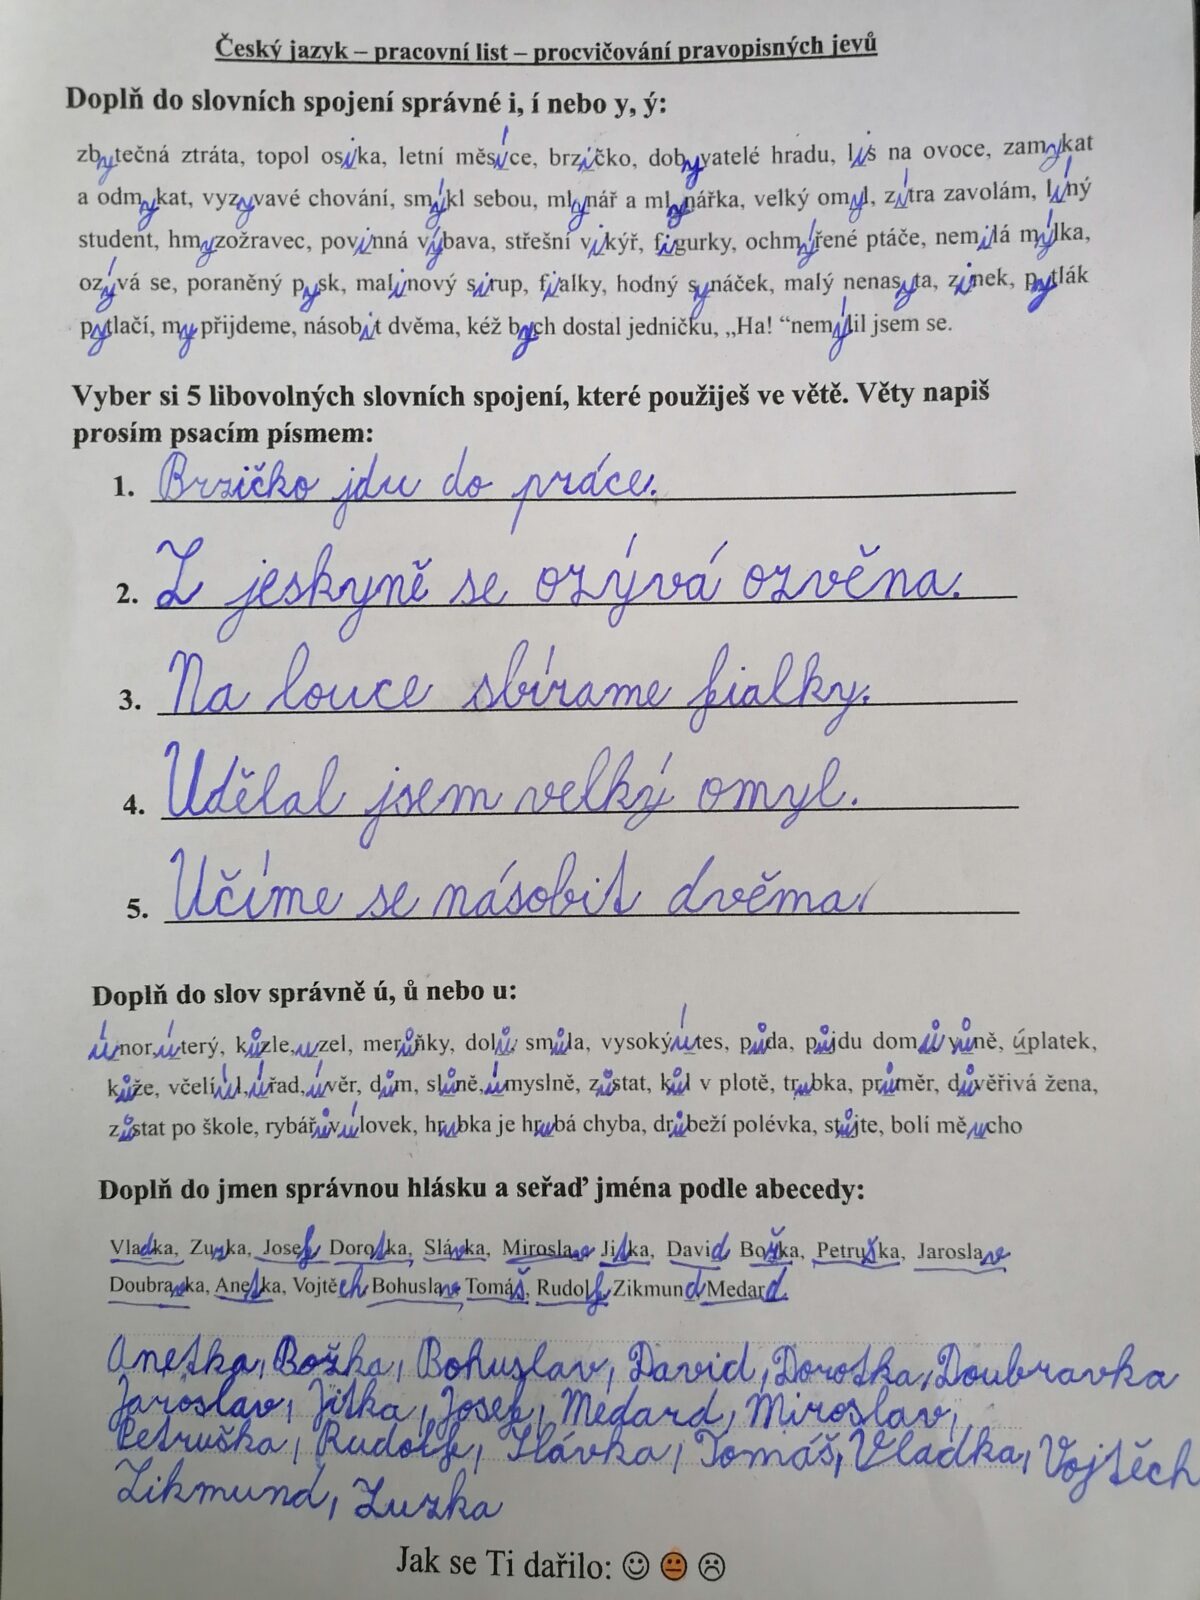 Český jazyk – pracovní list – procvičování pravopisných jevů
Doplň do slovních spojení správné i, í nebo y, ý:
zbytečná ztráta, topol osika, letní měsíce, brzičko, dobyvatelé hradu, lis na ovoce, zamykat
a odmykat, vyzyvavé chování, smýkl sebou, mlynář a mlynářka, velký omyl, zítra zavolám, líný
student, hmyzožravec, povinná výbava, střešní vikýř, figurky, ochmýřené ptáče, nemilá mýlka,
ozývá se, poraněný pysk, malinový sirup, fialky, hodný synáček, malý nenasyta, zinek, pytlák
pytlačí, my přijdeme, násobit dvěma, kéž bych dostal jedničku, „Ha! “nemýlil jsem se.
Vyber si 5 libovolných slovních spojení, které použiješ ve větě. Věty napiš
prosím psacím písmem:
1. Brzičko jdu do práce.
2. Z jeskyně se ozývá ozvěna.
3. Na louce sbírame fialky.
4. Udělal jsem velký omyl.
5. Učíme se násobit dvěma.
Doplň do slov správně ú, ů nebo u:
únor, úterý, kůzle, uzel, merůňky, dolů, smůla, vysoký útes, půda, půjdu domů, vůně, úplatek,
kůže, včelí úl, úřad, úvěr, dům, slůně, úmyslně, zůstat, kůl v plotě, trubka, průměr, důvěřivá žena,
zůstat po škole, rybářův úlovek, hrubka je hrubá chyba, drůbeží polévka, stůjte, bolí mě ucho
Doplň do jmen správnou hlásku a seřaď jména podle abecedy:
Vladka, Zuzka, Josef, Dorotka, Slávka, Miroslav, Jitka, David Božka, Petruška, Jaroslav
Doubravka, Anetka, Vojtěch Bohuslav Tomáš, Rudolf Zikmund Medard
Anetka, Božka, Bohuslav, David, Dorotka, Doubravka
Jaroslav, Jitka, Josef, Medard, Miroslav,
Petruška, Rudolf, Slávka, Tomáš, Vladka, Vojtěch
Zikmund, Zuzka
Jak se Ti dařilo: ☺ 😐 ☹